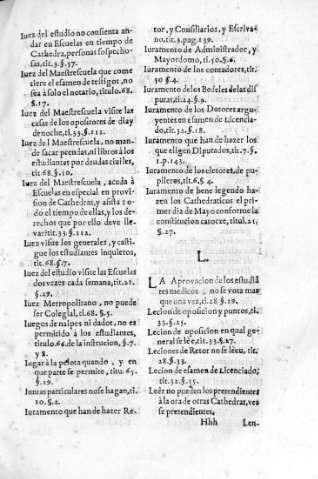 Iuez del estudio no consienta an-
dar en Escuelas en tiempo de
Cathedra, personas sospecho-
sas. tit.3.§.57.
Iuez del Maestrescuela que come
tiere el examen de testigos, no
sea à solo el notario, titulo.68.
§.17.
Iuez del Maestrescuela visite las
casas de los opositores de dia y
de noche, ti.33.§.111.
Iuez del Maestrescuela, no man-
de sacar pendas, ni libros à los
estudiantes por deudas ciuiles,
tit.68.§.10.
Iuez del Maestrescuela, acuda à
Escuelas en especial en prouis-
sion de Cathedras, y assista to-
do el tiempo de ellas, y los de-
rechos que por ello deue lle-
var: tit.33.§.112.
Iuez visite los generales, y casti-
gue los estudiantes inquietos,
tit.68.§.7.
Iuez del estudio visite las Escuelas
dos vezes cada semana, tit.21.
§.29.
Iuez Metropolitano, no puede
ser Colegial, ti.68.§.5.
Iuegos de naipes ni dados, no es
permitido à los estudiantes,
titulo 66. de la instrucion, §.7.
y 8.
Iugar à la pelota quando, y en
que parte se permite, titu.65.
§.19.
Iuntas particulares no se hagan, ti.
10.§.2.
Iuramento que han de hazer Re-
tor, y Consiliarios, y Escriva-
no, tit.3. pag.139.
Iuramento de Administrador, y
Mayordomo, ti.50.§.6.
Iuramento de los contadores, tit.
50 §.4.
Iuramento de los Bedeles de las dis
putas, tit.24.§.9.
Iuramento de los Dotores arguy-
entes en examen de Licencia-
do, tit.32.§.18.
Iuramento que han de hazer los
que eligen Diputados, tit.7.§.
1.p.143.
Iuramento de los eletores, de pu-
pileros, tit.6.§.4.
Iuramento de bene legendo ha-
zen los Cathedraticos el pri-
mer dia de Mayo conforme la
constitucion catorze, titul.21.
§.27.
L.
LA Aprovacion de los estudiã
tes medicos, no se vota mas
que una vez, ti.28 §.19.
Lecion de oposicion y puntos, ti.
33.§.25.
Lecion de oposicion en qual ge-
neral se lee, tit.33.§.17.
Leciones de Retor no se leẽ, tit.
28.§.33.
Lecion de examen de Licenciado;
tit.32.§.15.
Leer no pueden los pretendientes
à la ora de otras Cathedras, que
se pretendientes,
Hhh Len.